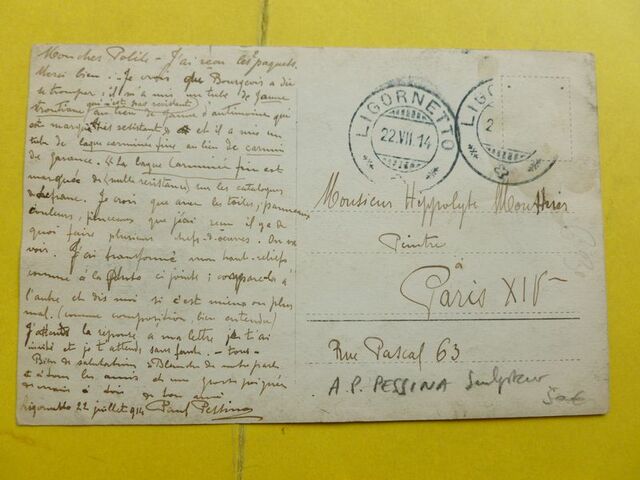 Mon cher Polite - J'ai reçu les paquets.
Merci bien. - Je crois que Bourgeois a dû
se tromper; il m'a mis un tube de jaune
qui n'est pas résistant
au lieu de jaune d'antimoine qui
est marqué très résistant et il a mis un
tube de laque carminée fine au lieu de carmin
de garance. "La laque Carminée fine est
marquée de (nulle résistance) sur les catalogues
Lefranc. Je crois que avec les toiles, panneaux
couleurs, pinceaux que j'ai reçu il y a de
quoi faire plusieurs chefs-d'œuvres. On va
voir. J'ai transformé mon haut-relief
comme à la photo ci jointe; compare la à
l'autre et dis moi si c'est mieux ou plus
mal. (comme composition, bien entendu)
J'attends la réponse a ma lettre je t'ai
invité et je t'attends sans faute. -
Bien de salutations à Blanche de notre part
et à tous les amis et une grosse poignée
de main à toi de ton ami
Ligornetto 22 juillet 914 Paul Pessina
LIGORNETTO
22.VII.14
LIGO
2
Monsieur Hyppolyte
Peintre
à
Paris XIV
Rue Pascal 63
A P. PESSINA Sculpteur
50€